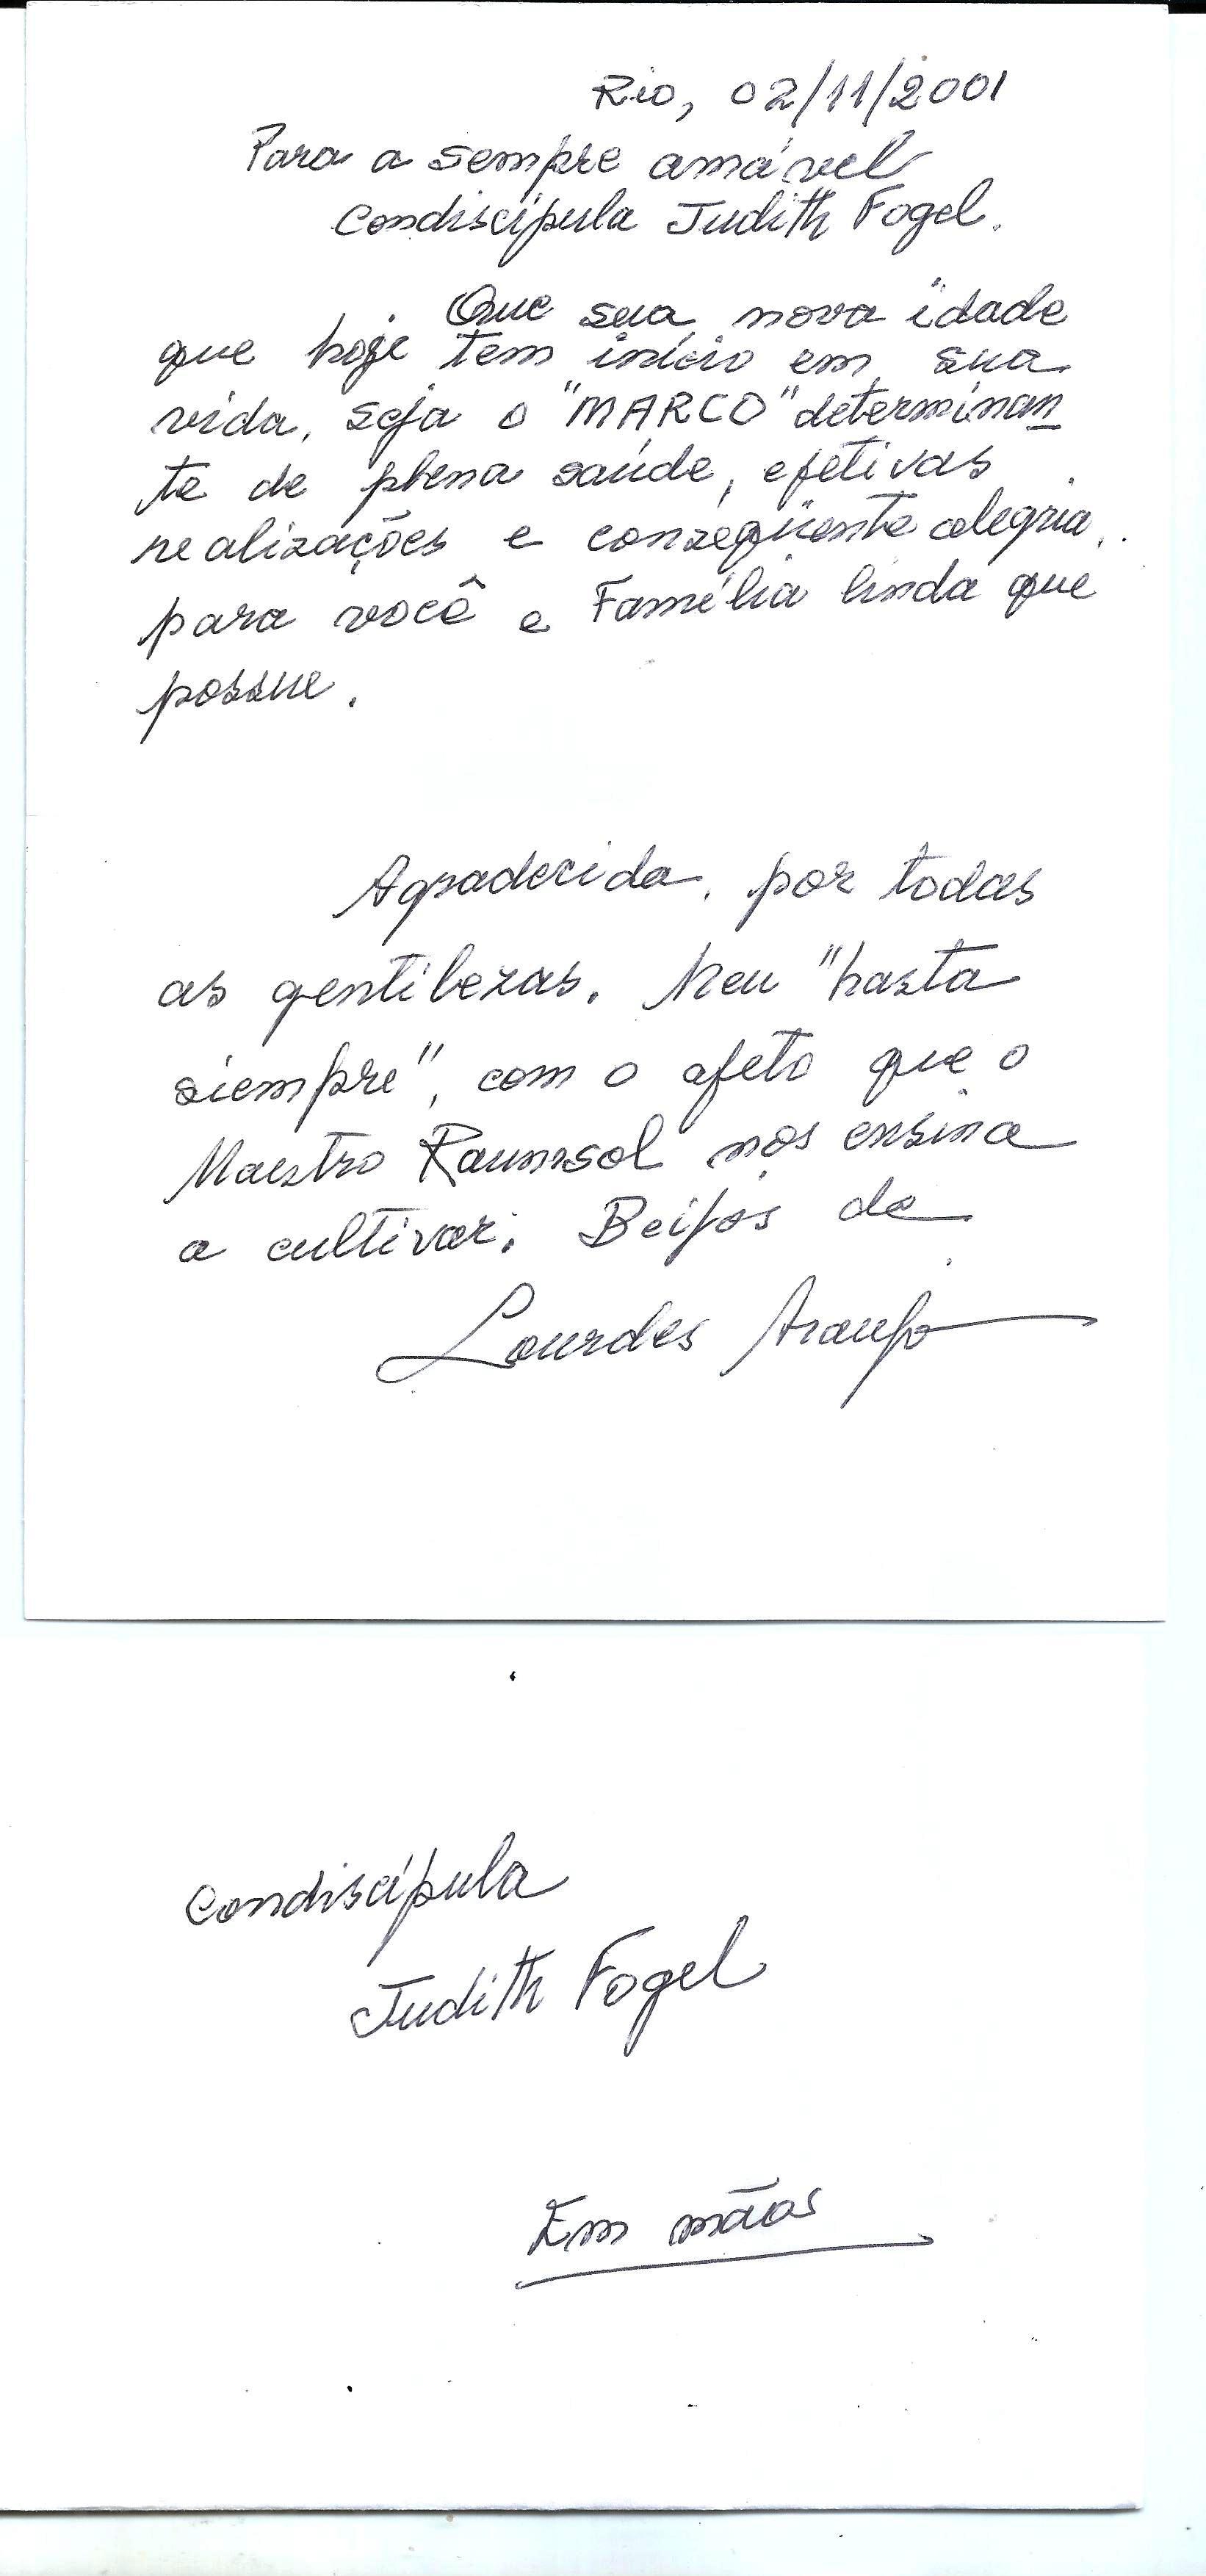 Rio, 02/11/2001
Para a sempre amável
Condiscípula Judith Fogel.
Que sua nova idade
que hoje tem início em sua
vida, seja o "MARCO" determinan
te de plena saúde, efetivas
realizações e conseqüente alegria,
para você e Família linda que
possue.
Agradecida, por todas
as gentilezas. Meu "hasta
siempre", com o afeto que o
Maestro Raumsol nos ensina
a cultivar. Beijos de
Lourdes Araujo
Condiscípula
Judith Fogel
Em mãos